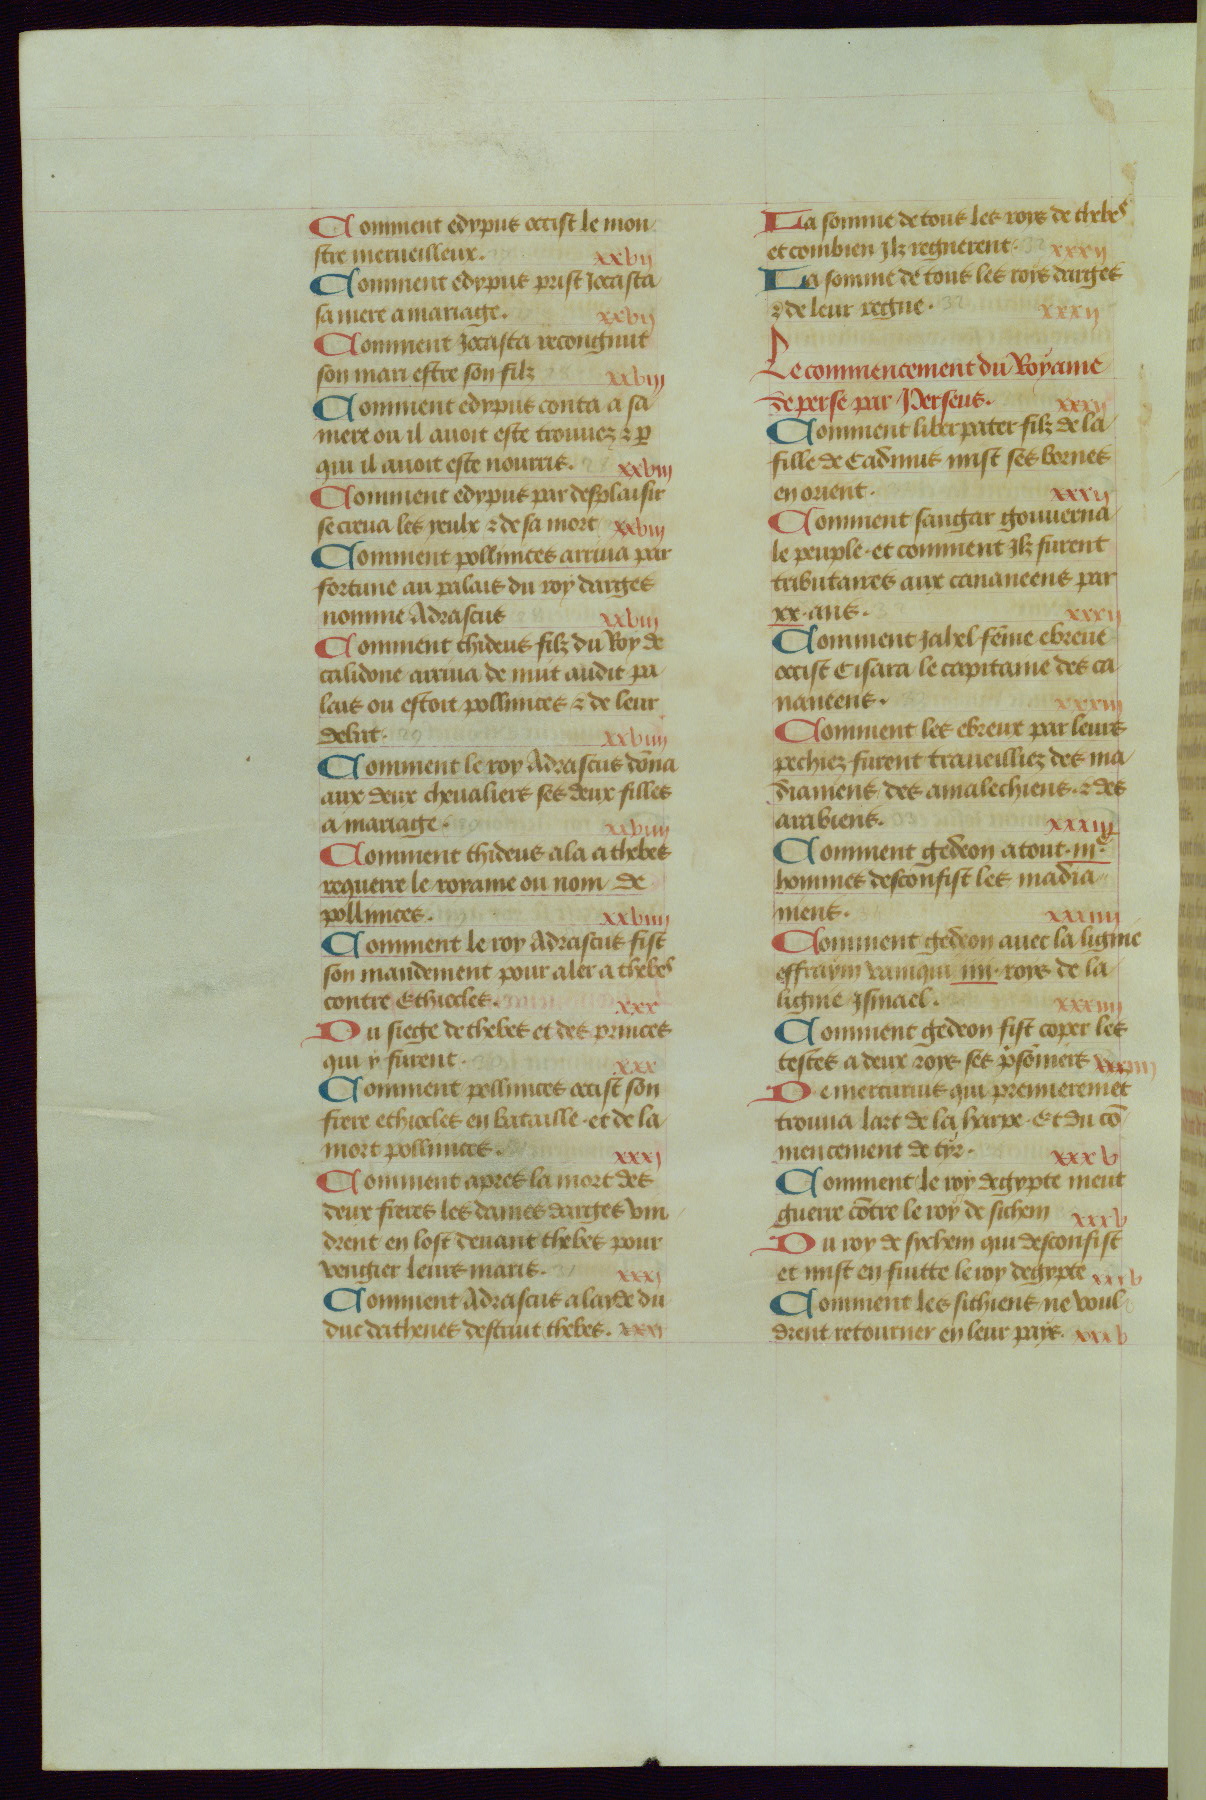 Comment edypus occist le mon
stre merueilleux. xxvij
Comment edypus prist Jocasta
sa mere a mariage. xxvij
Comment Jocasta recongnut
son mari estre son filz xxviij
Comment edypus conta a sa
mere ou il auoit este trouuez ⁊ ꝑ
qui il auoit este nourris. xxviij
Comment edypus par desplaisir
se creua les yeulx ⁊ de sa mort xxviij
Comment pollinices arriua par
fortune au palais du roy darges
nomme Adrascus xxviij
Comment thideus filz du Roy de
calidone arriua de nuit audit pa
lais ou estoit pollinices ⁊ de leur
debat. xxviiij
Comment le roy Adrascus dōna
aux deux cheualiers ses deux filles
a mariage. xxviiij
Comment thideus ala a thebes
requerre le royame ou nom de
pollinices. xxviiij
Comment le roy Adrascus fist
son mandement pour aler a thebes
contre Ethiocles. xxx
Du siege de thebes et des princes
qui y furent. xxx
Comment pollinices occist son
frere ethiocles en bataille. et de la
mort pollinices. xxxj
Comment apres la mort des
deux freres les dames darges vin
drent en lost deuant thebes pour
vengier leurs maris. xxxj
Comment Adrascus a layde du
duc dathenes destruit thebes. xxxj
La somme de tous les roys de thebes
et combien Jlz regnerent. 32 xxxij
La somme de tous les rois darges
⁊ de leur regne. 32 xxxij
Le commencement du Royame
de perse par Perseus. xxxij
Comment liber pater filz de la
fille de Cadmus mist ses bornes
en orient. xxxij
Comment sangar gouuerna
le peuple. et comment Jlz furent
tributaires aux cananeens par
xx. ans. xxxij
Comment Jahel fēme ebreue
occist Cisara le capitaine des ca
naneens. xxxiij
Comment les ebreux par leurs
pechiez furent traueilliez des ma
dianiens, des amalechiens. ⁊ des
arabiens. xxxiij
Comment gedeon atout. iijᶜ
hommes desconfist les madia
niens. xxxiiij
Comment gedeon auec la lignie
effraym vainqui iiij. roys de la
lignie Jsmael. xxxiiij
Comment gedeon fist coper les
testes a deux roys ses p̄sōniers xxxiiij
De mercurius qui premieremēt
trouua lart de la harpe. Et du cō
mencement de tyr. xxxv
Comment le roy degypte meut
guerre cōtre le roy de sichem xxxv
Du roy de sychem qui desconfist
et mist en fuitte le roy degypte xxxv
Comment les sithiens ne voul
drent retourner en leur pays. xxxv